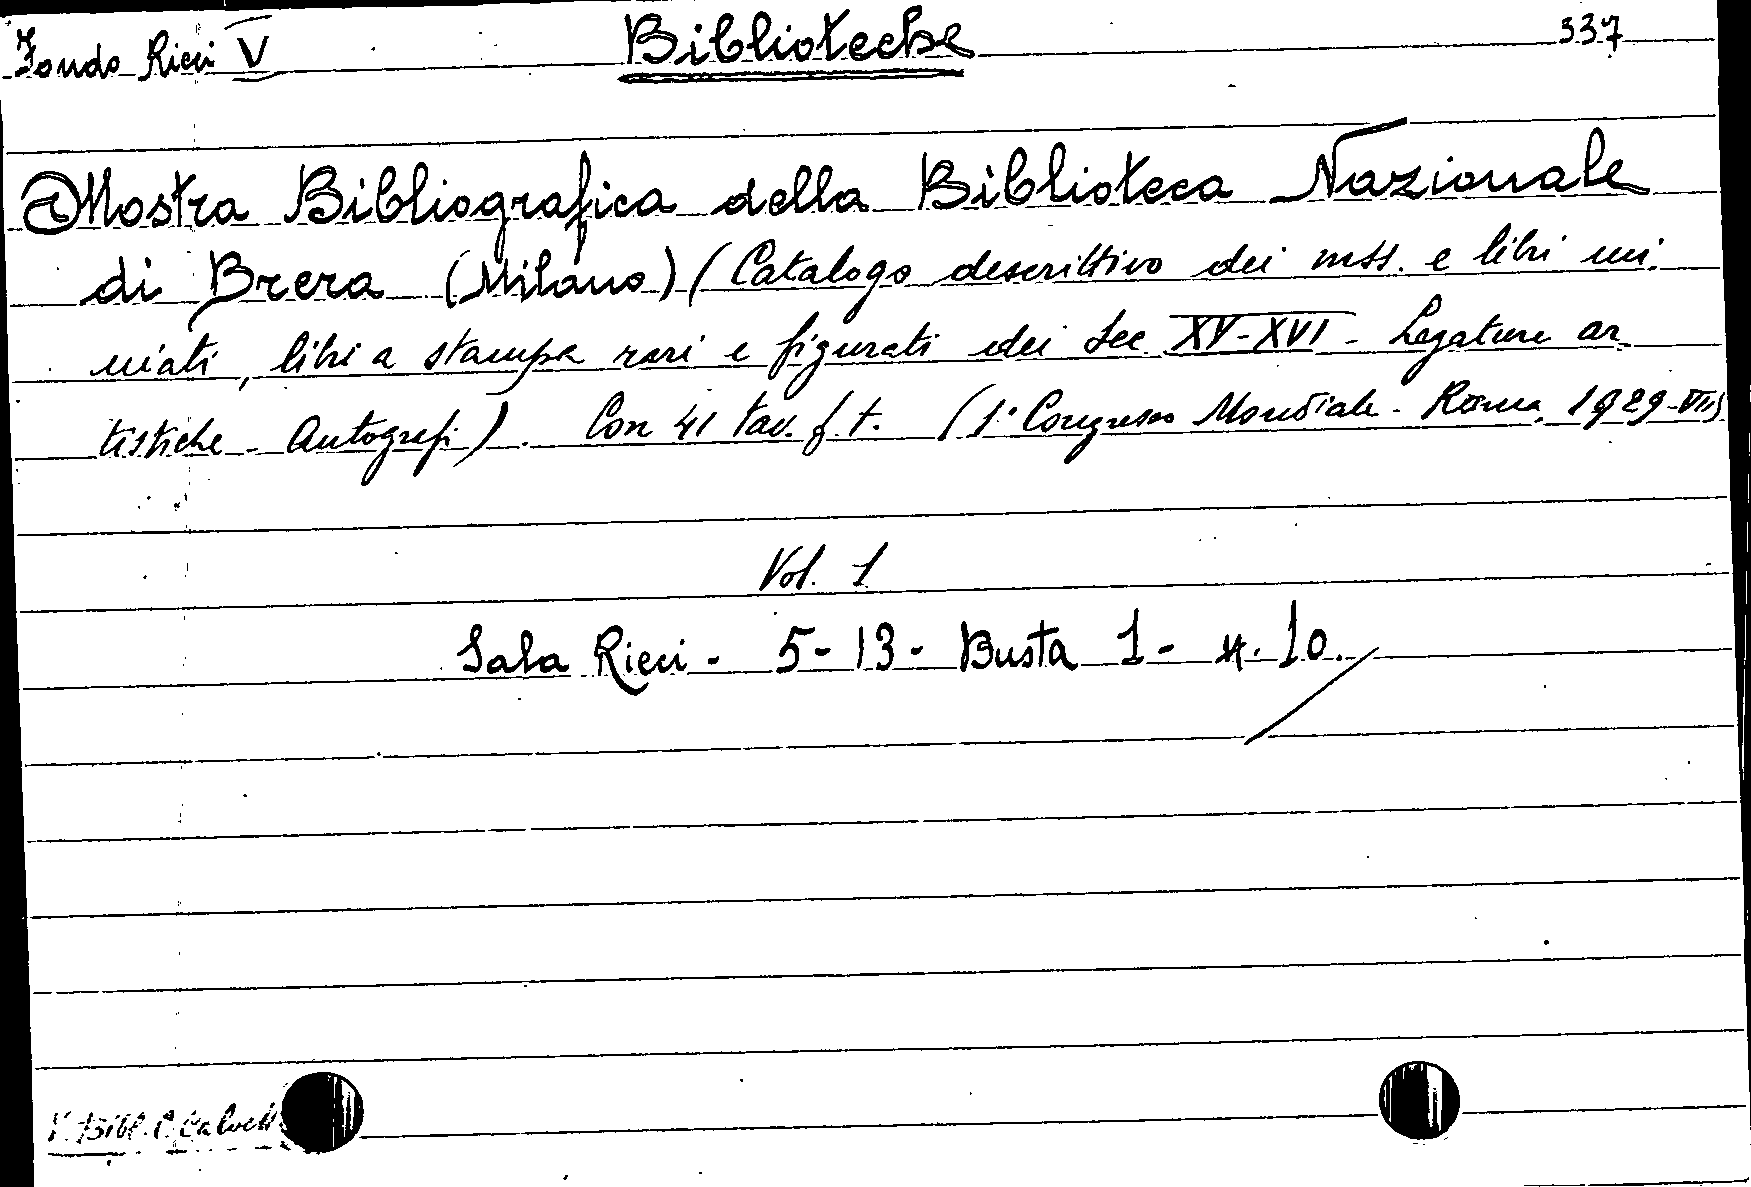 Fondo Ricci V Biblioteche 337
Mostra Bibliografica della Biblioteca Nazionale
di Brera (Milano) (Catalogo descrittivo dei mss. e libri mi
niati, libri a stampa rari e figurati dei Sec XV-XVI - Legature ar
tistiche - Autografi). Con 41 tav. f. t. (1° Congresso Mondiale - Roma, 1929-VII)
Vol. 1
Sala Ricci - 5-13 - Busta 1 - n. 10.
V. Bibl.